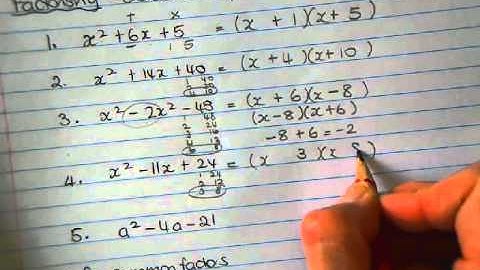 Factorising
+ ×
1. x² + 6x + 5 = (x + 1)(x + 5)
1 5
2. x² + 14x + 40 = (x + 4)(x + 10)
1 40
2 20
4 10
3. x² - 2x² - 48 = (x + 6)(x - 8)
1 48
(x - 8)(x + 6)
2 24
3 16
-8 + 6 = -2
4 12
6 8
4. x² - 11x + 24 = (x 3)(x 8)
1 24
2 12
3 8
5. a² - 4a - 21
common factors